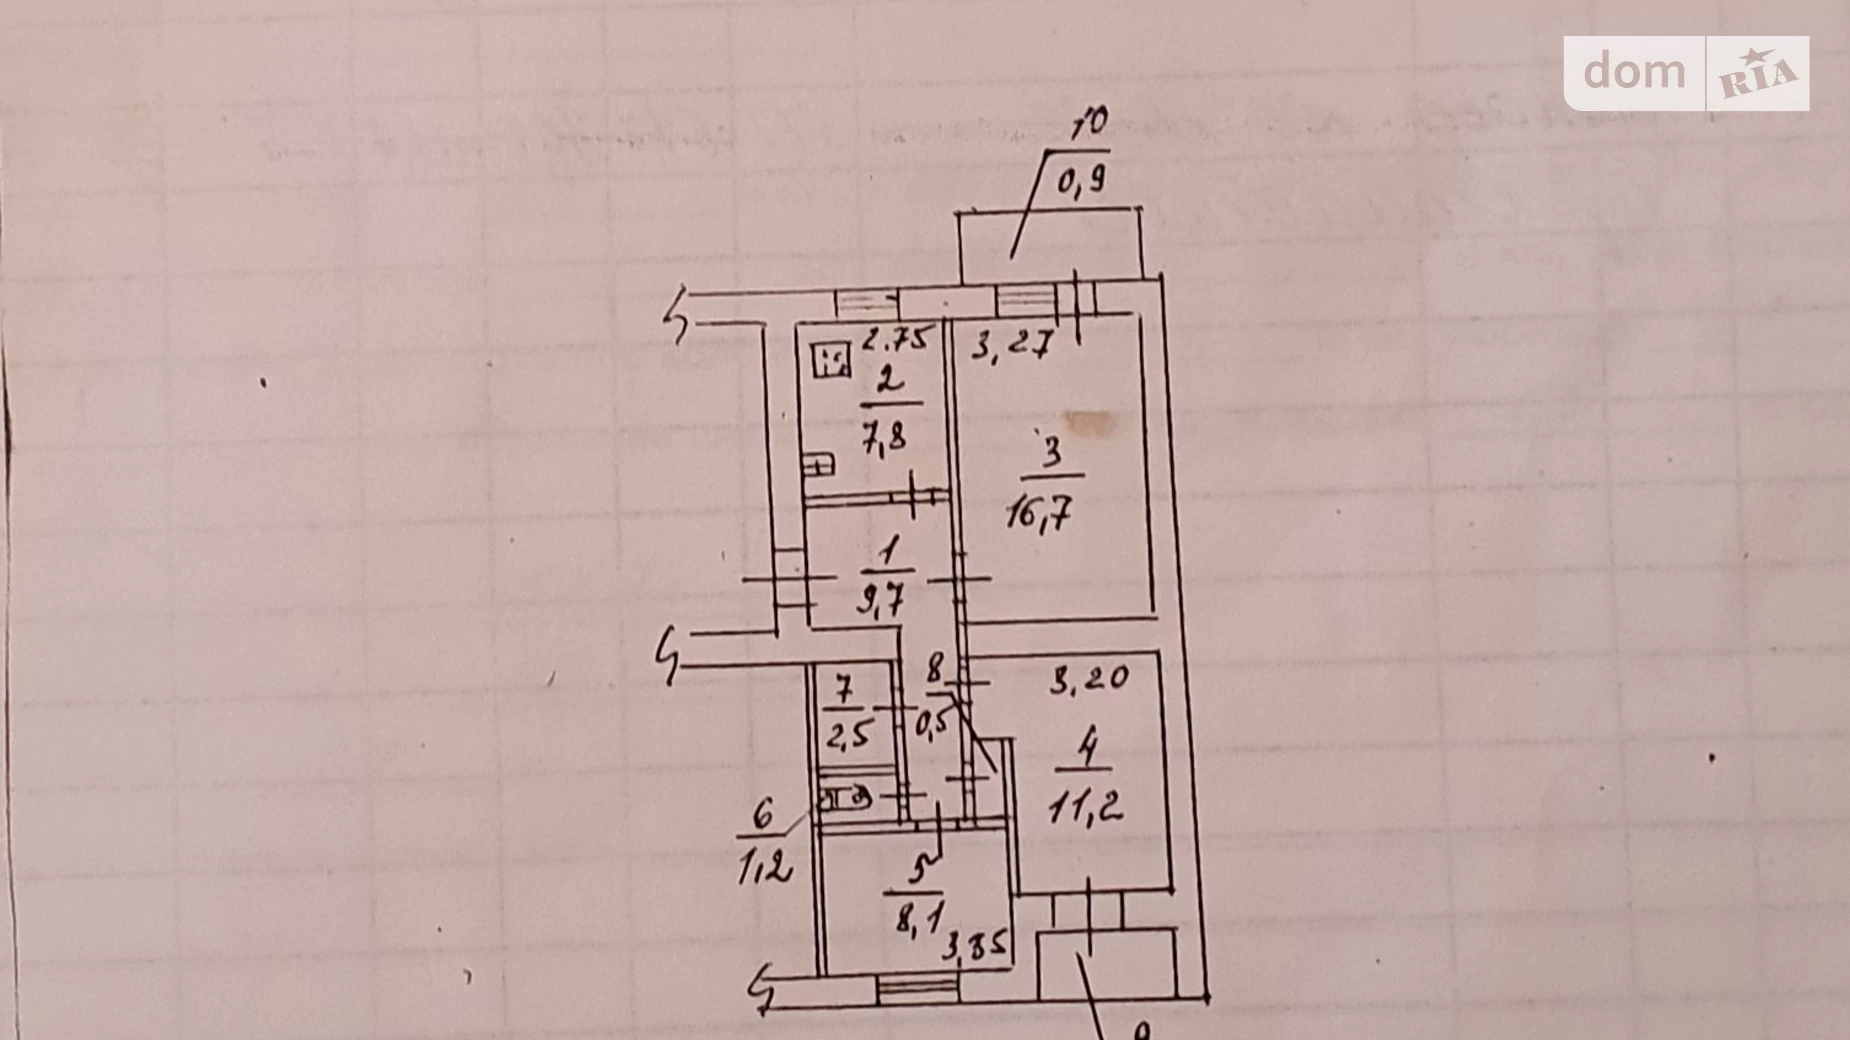 dom RIA
10
0,9
2.75
3,27
2
7,8
3
16,7
1
9,7
8
0,5
3,20
7
2,5
4
11,2
6
1,2
5
8,1
3,35
9